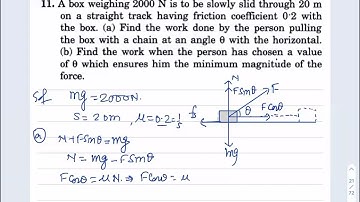 11. A box weighing 2000 N is to be slowly slid through 20 m
on a straight track having friction coefficient 0·2 with
the box. (a) Find the work done by the person pulling
the box with a chain at an angle θ with the horizontal.
(b) Find the work when the person has chosen a value
of θ which ensures him the minimum magnitude of the
force.
Sol mg = 2000N.
S = 20m μ = 0.2 = 1/5
N
Fsinθ
F
θ
Fcosθ
f
mg
(a) N + Fsinθ = mg
N = mg - Fsinθ
Fcosθ = μN. ⇒ Fcosθ = μ
21
72